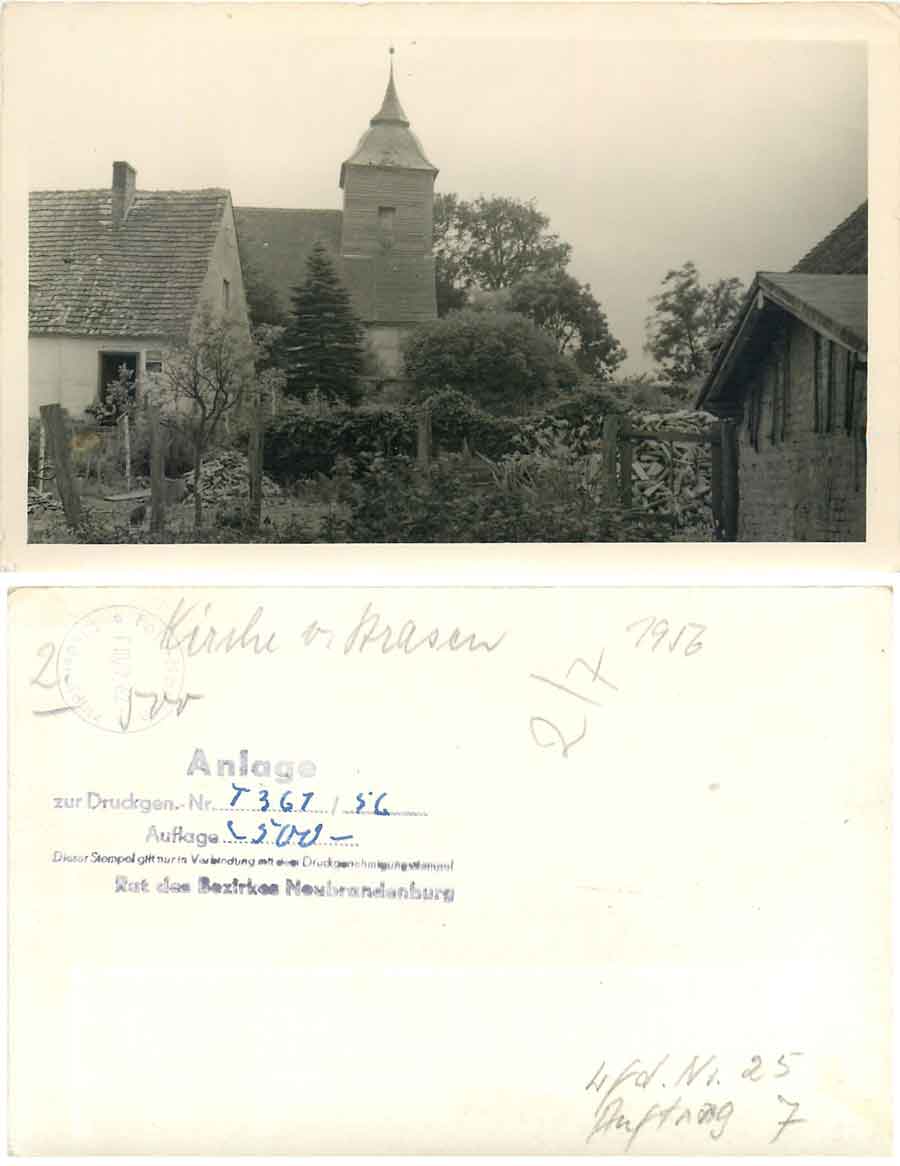 Kirche v. Strasen
1956
2
500
2/7
Anlage
zur Druckgen.-Nr. T 361 / 56
Auflage - 500 -
Dieser Stempel gilt nur in Verbindung mit dem Druckgenehmigungsstempel
Rat des Bezirkes Neubrandenburg
Lfd. Nr. 25
Auftrag 7